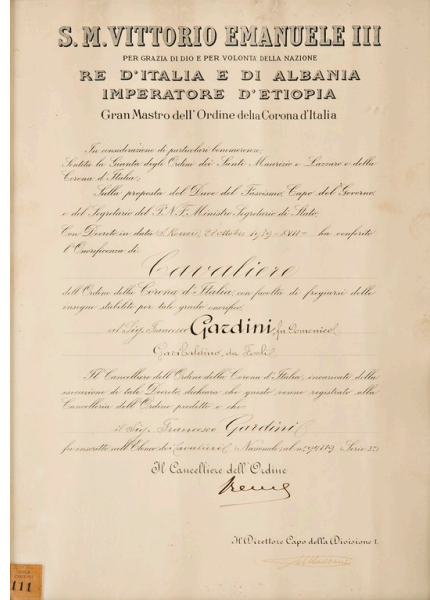 S. M. VITTORIO EMANUELE III
PER GRAZIA DI DIO E PER VOLONTÀ DELLA NAZIONE
RE D'ITALIA E DI ALBANIA
IMPERATORE D'ETIOPIA
Gran Mastro dell'Ordine della Corona d'Italia
In considerazione di particolari benemerenze;
Sentita la Giunta degli Ordini dei Santi Maurizio e Lazzaro e della
Corona d'Italia;
Sulla proposta del Duce del Fascismo, Capo del Governo
e del Segretario del P.N.F. Ministro Segretario di Stato;
Con Decreto in data S. Rossore, 28 ottobre 1939-XVII- ha conferito
l'Onorificenza di
Cavaliere
dell'Ordine della Corona d'Italia, con facoltà di fregiarsi delle
insegne stabilite per tale grado onorifico,
al Sig. Francesco Gardini fu Domenico
Garibaldino, da Forlì
Il Cancelliere dell'Ordine della Corona d'Italia, incaricato della
esecuzione di tale Decreto, dichiara che questo venne registrato alla
Cancelleria dell'Ordine predetto e che
il Sig. Francesco Gardini
fu inscritto nell'Elenco dei Cavalieri Nazionale, al n.
Il Cancelliere dell'Ordine
Il Direttore Capo della Divisione I.
111